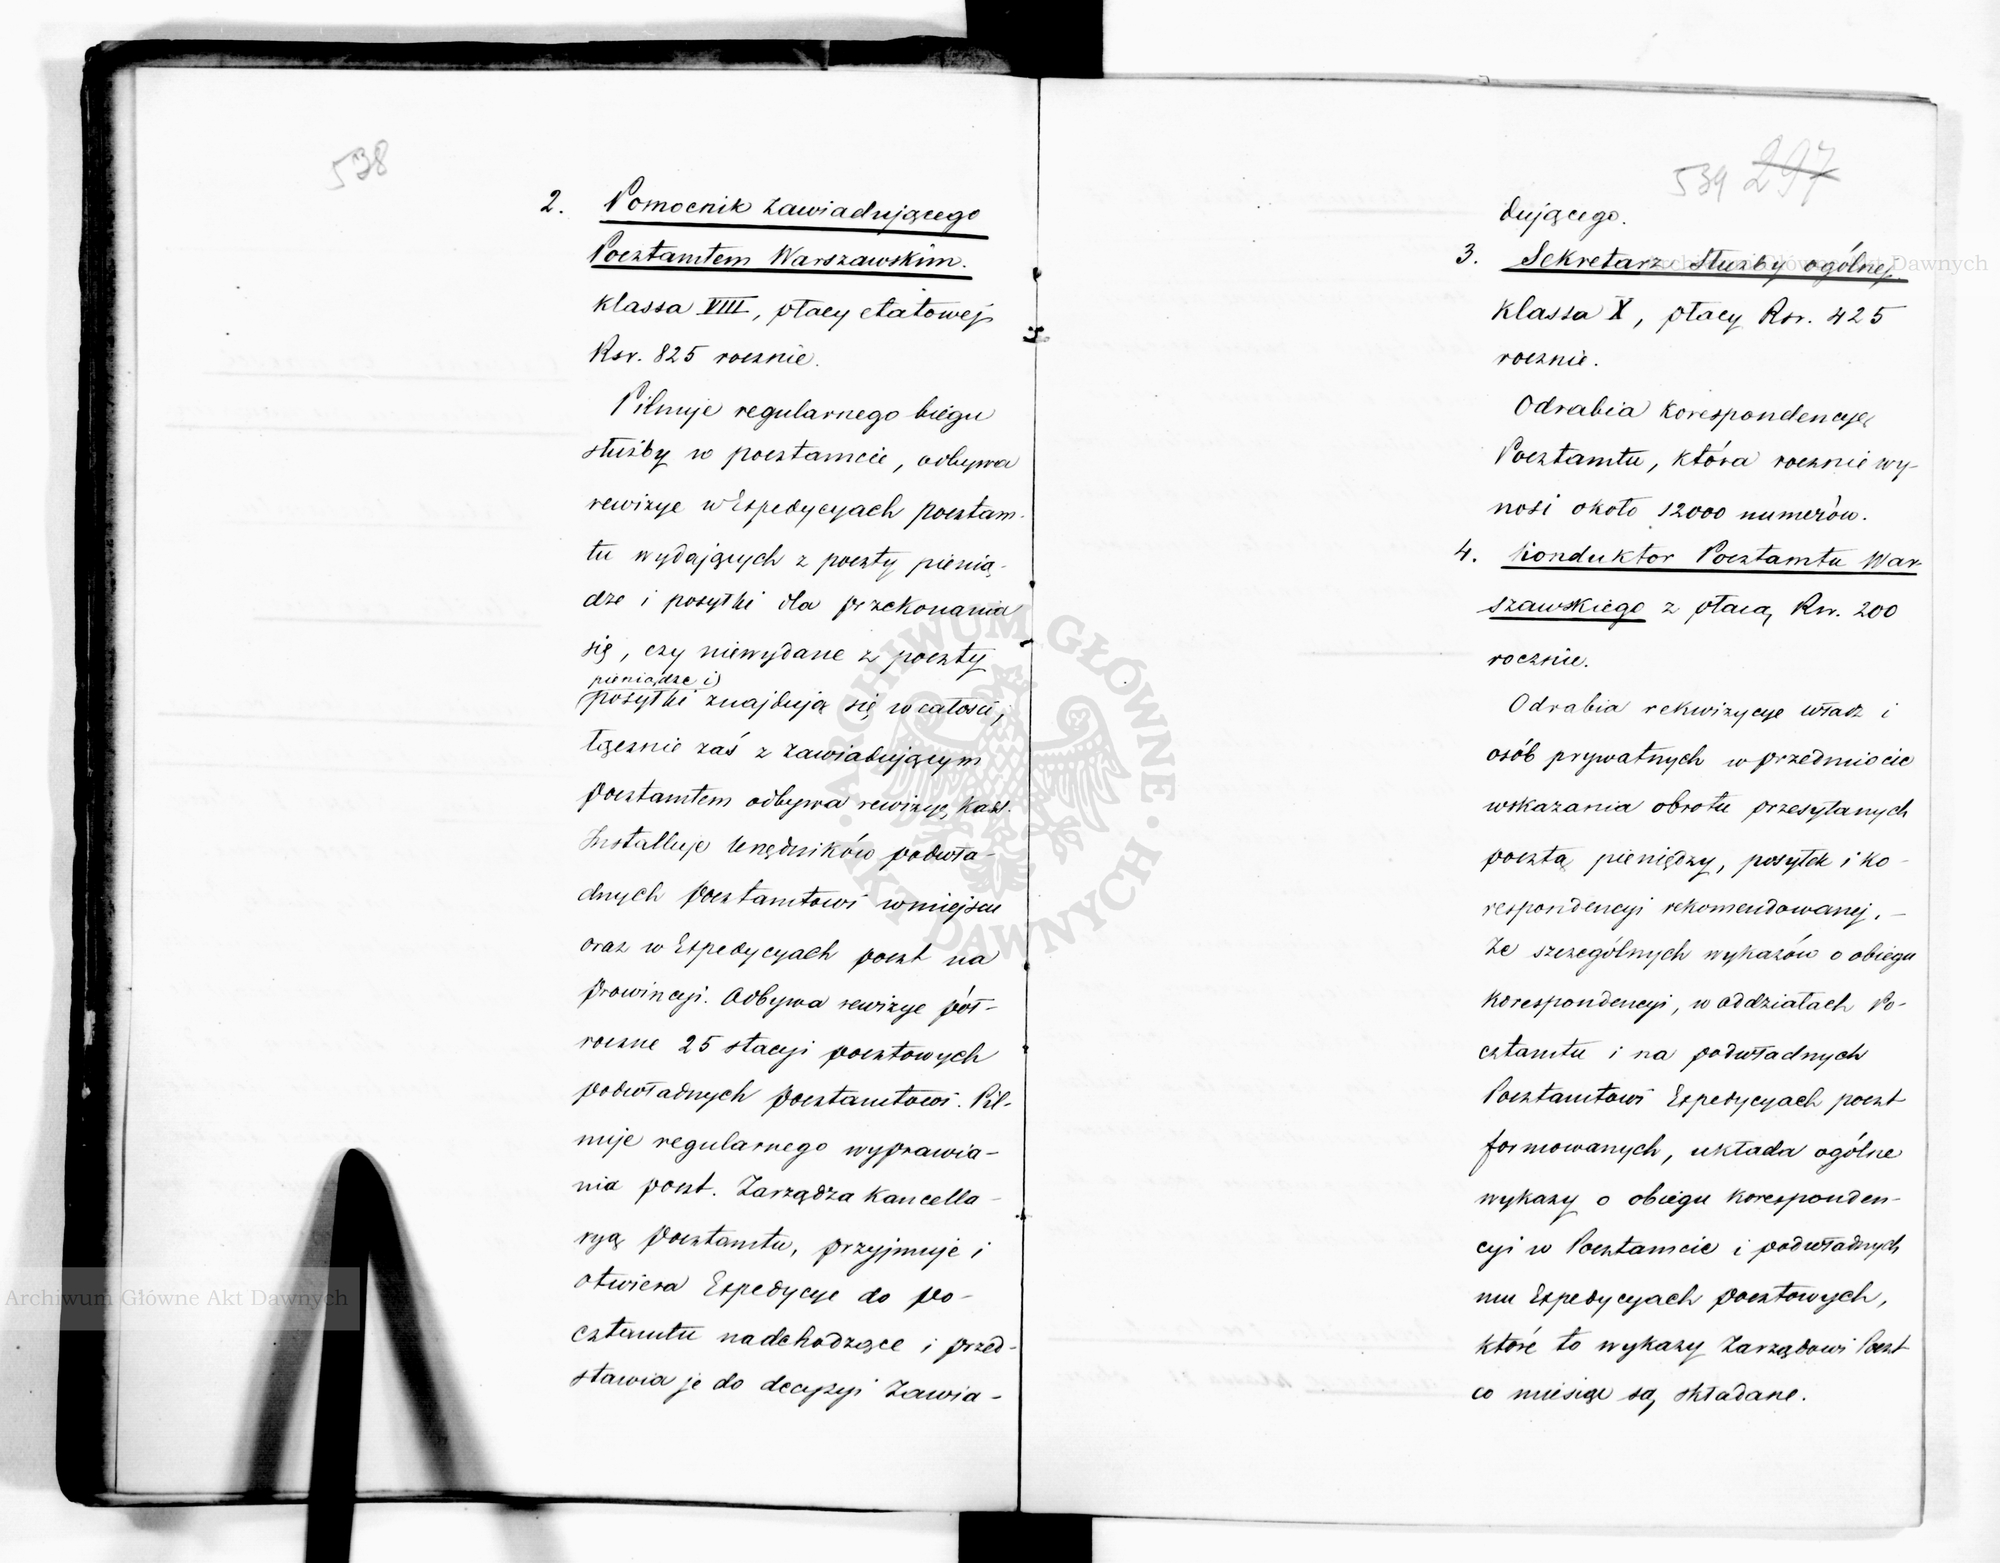 538
2. Pomocnik zawiadującego
Pocztamtem Warszawskim.
klassa VIII, płacy etatowej
Rsr. 825 rocznie.
Pilnuje regularnego biegu
służby w pocztamcie, odbywa
rewizye w Expedycyach pocztam-
tu wydających z poczty pienią-
dze i posyłki dla przekonania
się, czy niewydane z poczty
pieniądze i
posyłki znajdują się w całości,
łącznie zaś z zawiadującym
pocztamtem odbywa rewizyę kass.
Installuje Urzędników podwła-
dnych pocztamtowi w miejscu
oraz w Expedycyach poczt na
prowincyi. Odbywa rewizye pół-
roczne 25 stacyi pocztowych
podwładnych pocztamtowi. Pil-
nuje regularnego wyprawia-
nia poczt. Zarządza Kancella-
ryą pocztamtu, przyjmuje i
otwiera Expedycye do Po-
cztamtu nadchodzące i przed-
stawia je do decyzyi Zawia-
539 297
dującego.
3. Sekretarz Służby ogólnej
klassa X, płacy Rsr. 425
rocznie.
Odrabia korespondencyę
Pocztamtu, która rocznie wy-
nosi około 12000 numerów.
4. Konduktor Pocztamtu War-
szawskiego z płacą Rsr. 200
rocznie.
Odrabia rekwizycye władz i
osób prywatnych w przedmiocie
wskazania obrotu przesyłanych
pocztą pieniędzy, posyłek i ko-
respondencyi rekomendowanej. -
Ze szczególnych wykazów o obiegu
korespondencyi, w oddziałach Po-
cztamtu i na podwładnych
Pocztamtowi Expedycyach poczt
formowanych, układa ogólne
wykazy o obiegu koresponden-
cyi w Pocztamcie i podwładnych
mu Expedycyach pocztowych,
które to wykazy Zarządowi Poczt
co miesiąc są składane.
ARCHIWUM GŁÓWNE AKT DAWNYCH
Archiwum Główne Akt Dawnych
Archiwum Główne Akt Dawnych